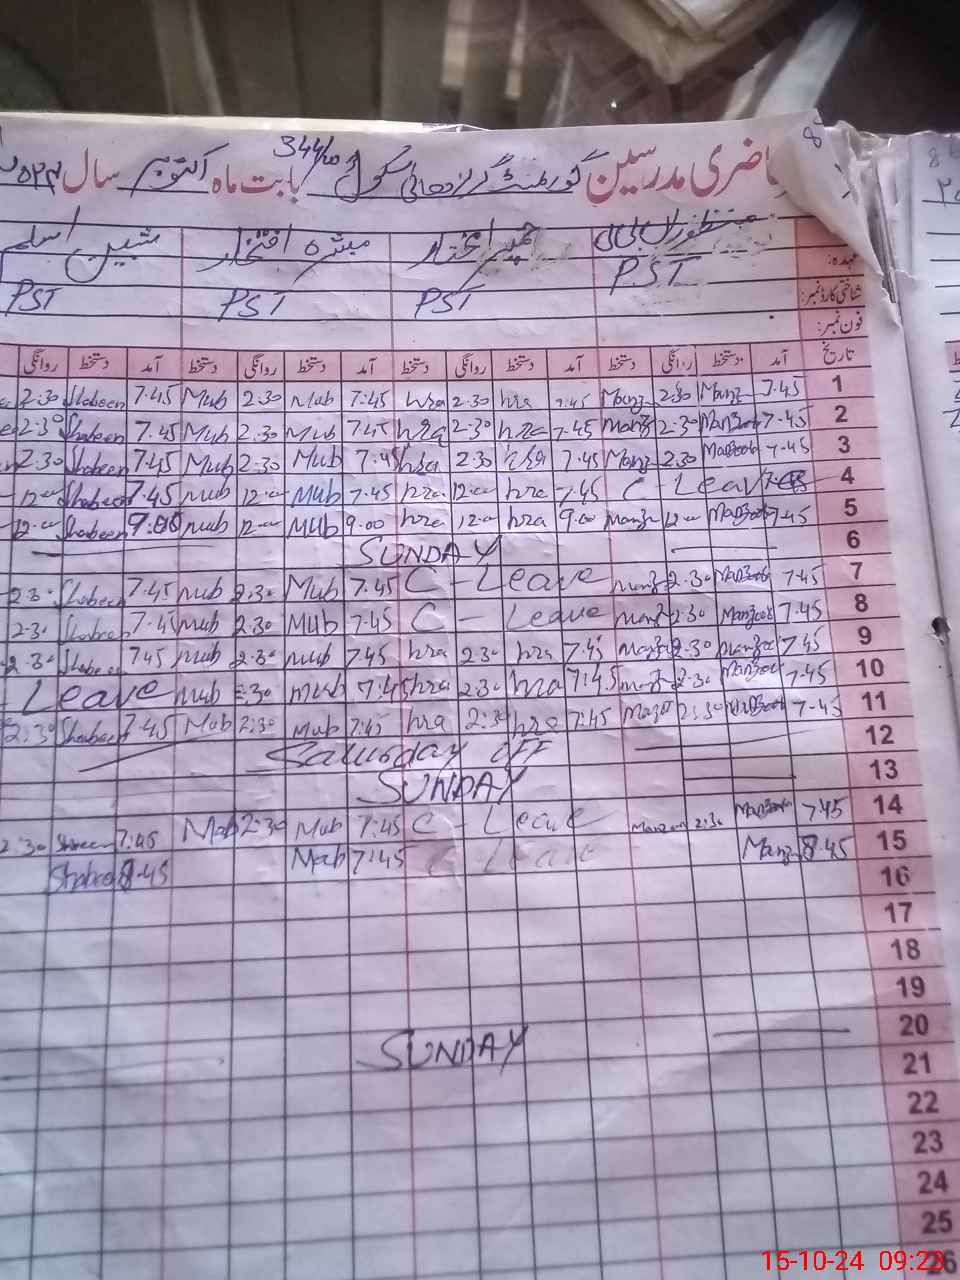 حاضری مدرسین گورنمنٹ گرلز ہائی سکول 344/ بابت ماہ اکتوبر سال
منظوراں بی بی مبشرہ افتخار اسلم
عہدہ: PST PST PST PST
شناختی کارڈ نمبر:
فون نمبر:
تاریخ آمد دستخط روانگی دستخط آمد دستخط روانگی دستخط آمد دستخط روانگی دستخط آمد دستخط روانگی
1 7.45 Manz 2.30 Manz 7.45 hra 2.30 hra 7:45 Mub 2.30 Mub 7.45 Shabeen 2.30
2 7-45 Manzoor 2.30 Manz 7-45 hra 2.30 hra 7.45 Mub 2.30 Mub 7.45 Shabeen 2.30
3 7-45 Manzoor 2.30 Manz 7.45 hra 2.30 hra 7.45 Mub 2.30 Mub 7.45 Shabeen 2.30
4 C - Leave 7.45 hra 12.00 hra 7.45 Mub 12.00 Mub 7.45 Shabeen 12.00
5 7.45 Manzoor 12.00 Manz 9.00 hra 12.00 hra 9.00 Mub 12.00 Mub 9.00 Shabeen 12.00
6 SUNDAY
7 7.45 Manzoor 2.30 Manz C - Leave 7.45 Mub 2.30 Mub 7.45 Shabeen 2.30
8 7.45 Manzoor 2.30 Manz C - Leave 7.45 Mub 2.30 Mub 7.45 Shabeen 2.30
9 7.45 Manzoor 2.30 Manz 7.45 hra 2.30 hra 7.45 Mub 2.30 Mub 7.45 Shabeen 2.30
10 7.45 Manzoor 2.30 Manz 7:45 hra 2.30 hra 7:45 Mub 2.30 Mub Leave
11 7.45 Manzoor 2:30 Manz 7:45 hra 2:30 hra 7:45 Mub 2:30 Mub 7.45 Shabeen 2:30
12 Saturday OFF
13 SUNDAY
14 7.45 Manzoor 2:30 Manzoor C - Leave 7:45 Mub 2:30 Mub 7:45 Shabeen 2:30
15 8.45 Manz C Leave 7:45 Mub 8.45 Shabeen
16
17
18
19
20 SUNDAY
21
22
23
24
25
26
15-10-24 09:23